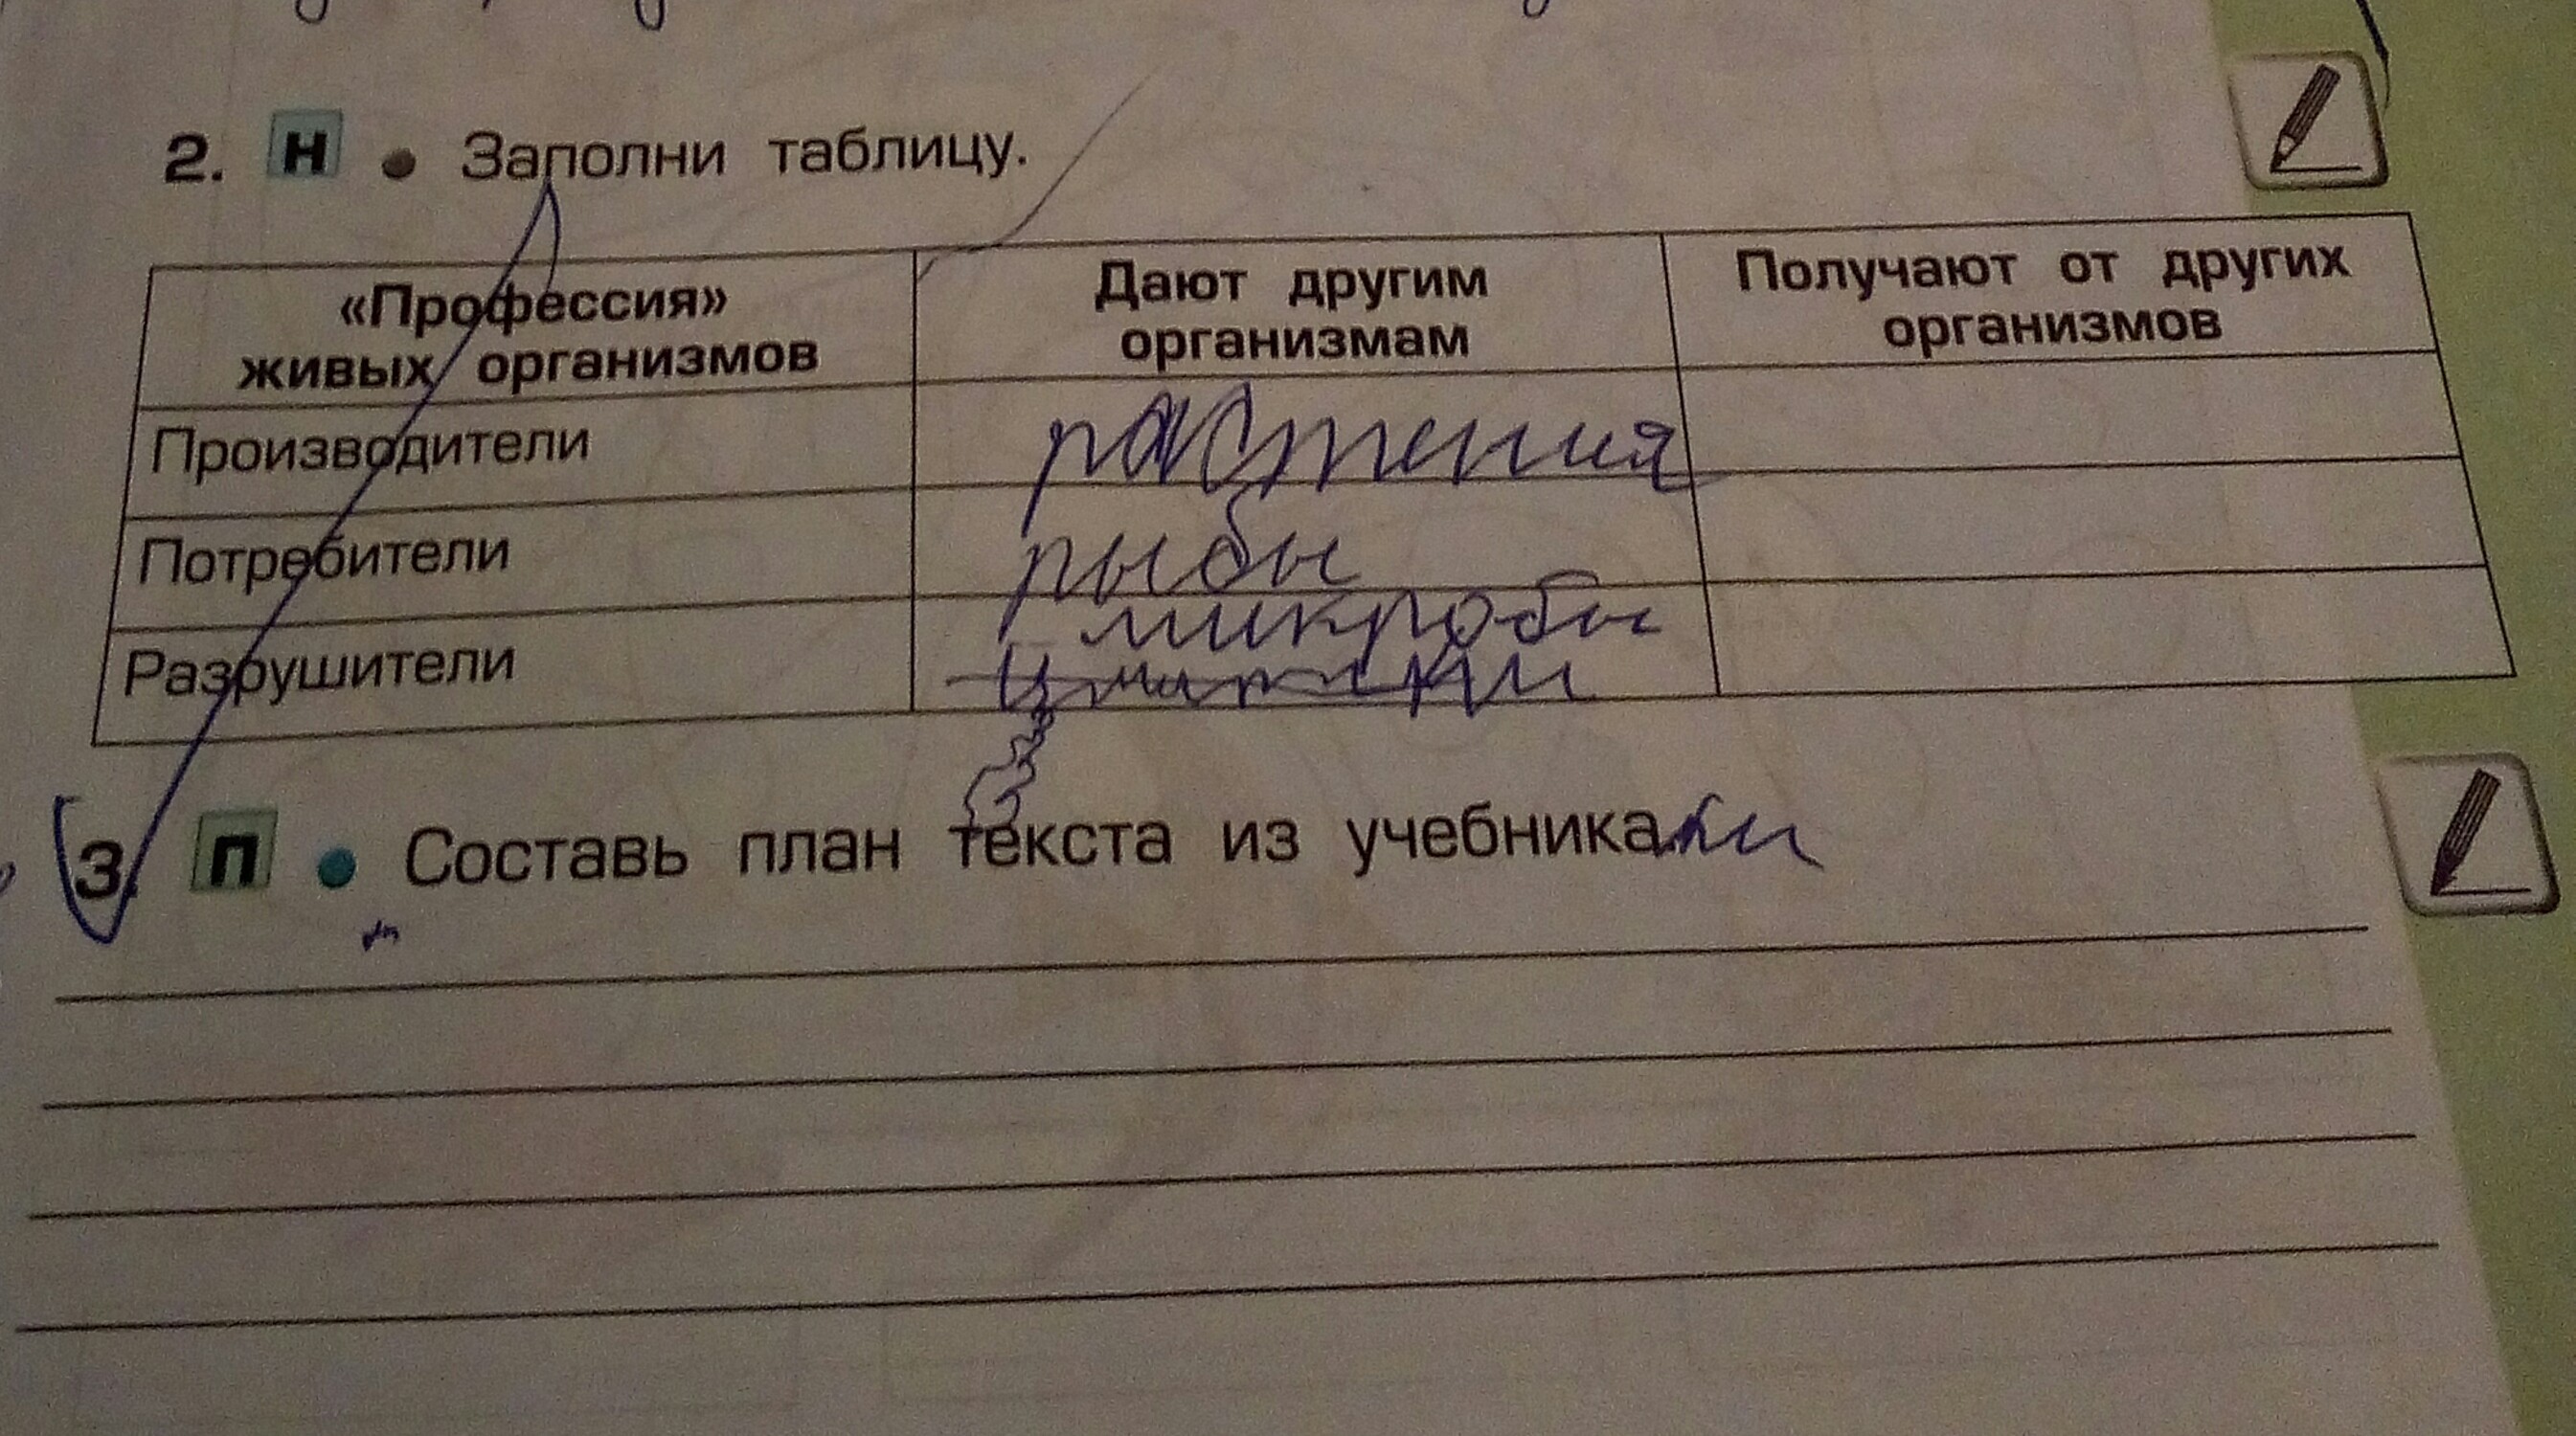 2. Н • Заполни таблицу.
«Профессия» живых организмов
Дают другим организмам
Получают от других организмов
Производители
растения
Потребители
рыбы
Разрушители
микробы
3. П • Составь план текста из учебника.